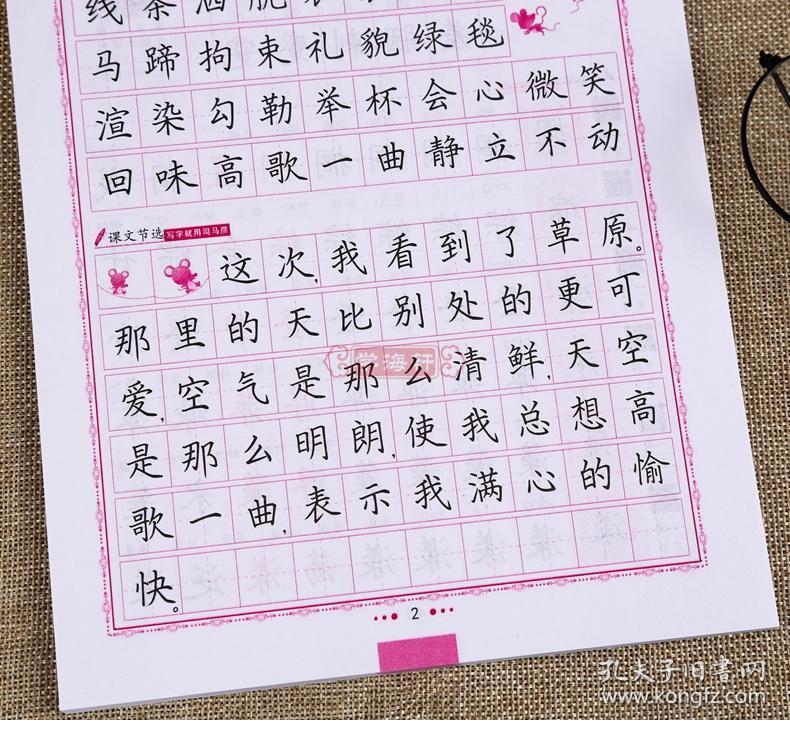 马蹄拘束礼貌绿毯
渲染勾勒举杯会心微笑
回味高歌一曲静立不动
课文节选 写字就用司马彦
这次,我看到了草原。
那里的天比别处的更可
爱,空气是那么清鲜,天空
是那么明朗,使我总想高
歌一曲,表示我满心的愉
快。
2
学海轩
孔夫子旧书网
www.kongfz.com